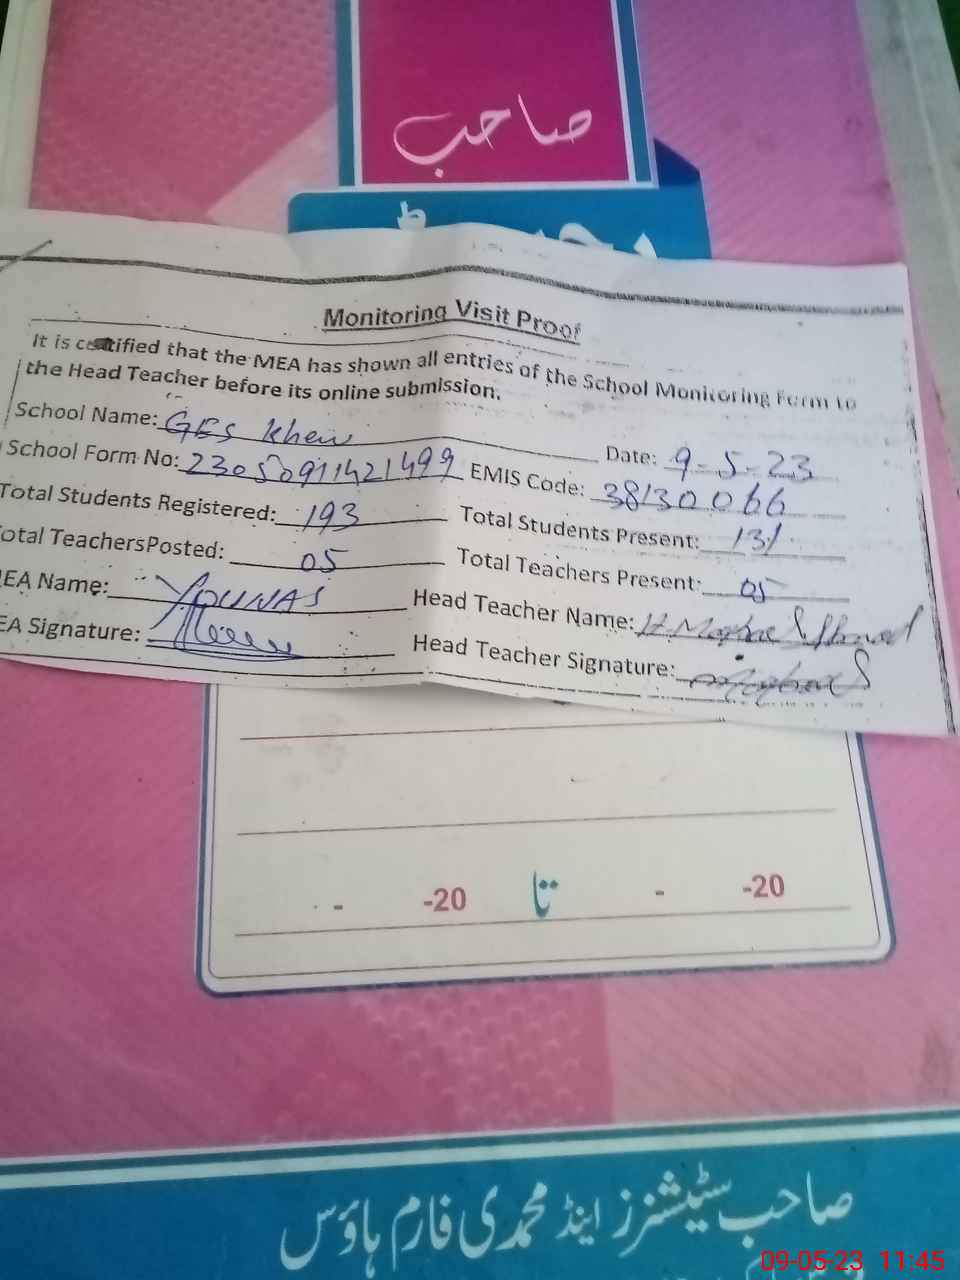 صاحب
Monitoring Visit Proof
It is certified that the MEA has shown all entries of the School Monitoring Form to
the Head Teacher before its online submission.
School Name: GES Khew
Date: 9-5-23
School Form No: 23050911421499 EMIS Code: 38130066
Total Students Registered: 193 Total Students Present: 131
otal TeachersPosted: 05 Total Teachers Present: 05
EA Name: YOUNAS Head Teacher Name:
EA Signature: Head Teacher Signature:
- -20 تا - -20
صاحب سٹیشنرز اینڈ محمدی فارم ہاؤس
09-05-23 11:45